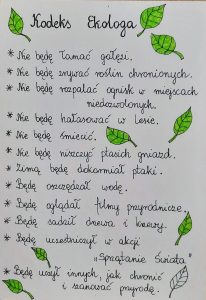 Kodeks Ekologa
* Nie będę łamać gałęzi.
* Nie będę zrywać roślin chronionych.
* Nie będę rozpalać ognisk w miejscach
niedozwolonych.
* Nie będę hałasować w lesie.
* Nie będę śmiecić.
* Nie będę niszczyć ptasich gniazd.
* Zimą będę dokarmiał ptaki.
* Będę oszczędzał wodę.
* Będę oglądał filmy przyrodnicze.
* Będę sadził drzewa i krzewy.
* Będę uczestniczył w akcji
„Sprzątanie Świata"
* Będę uczył innych, jak chronić
i szanować przyrodę.